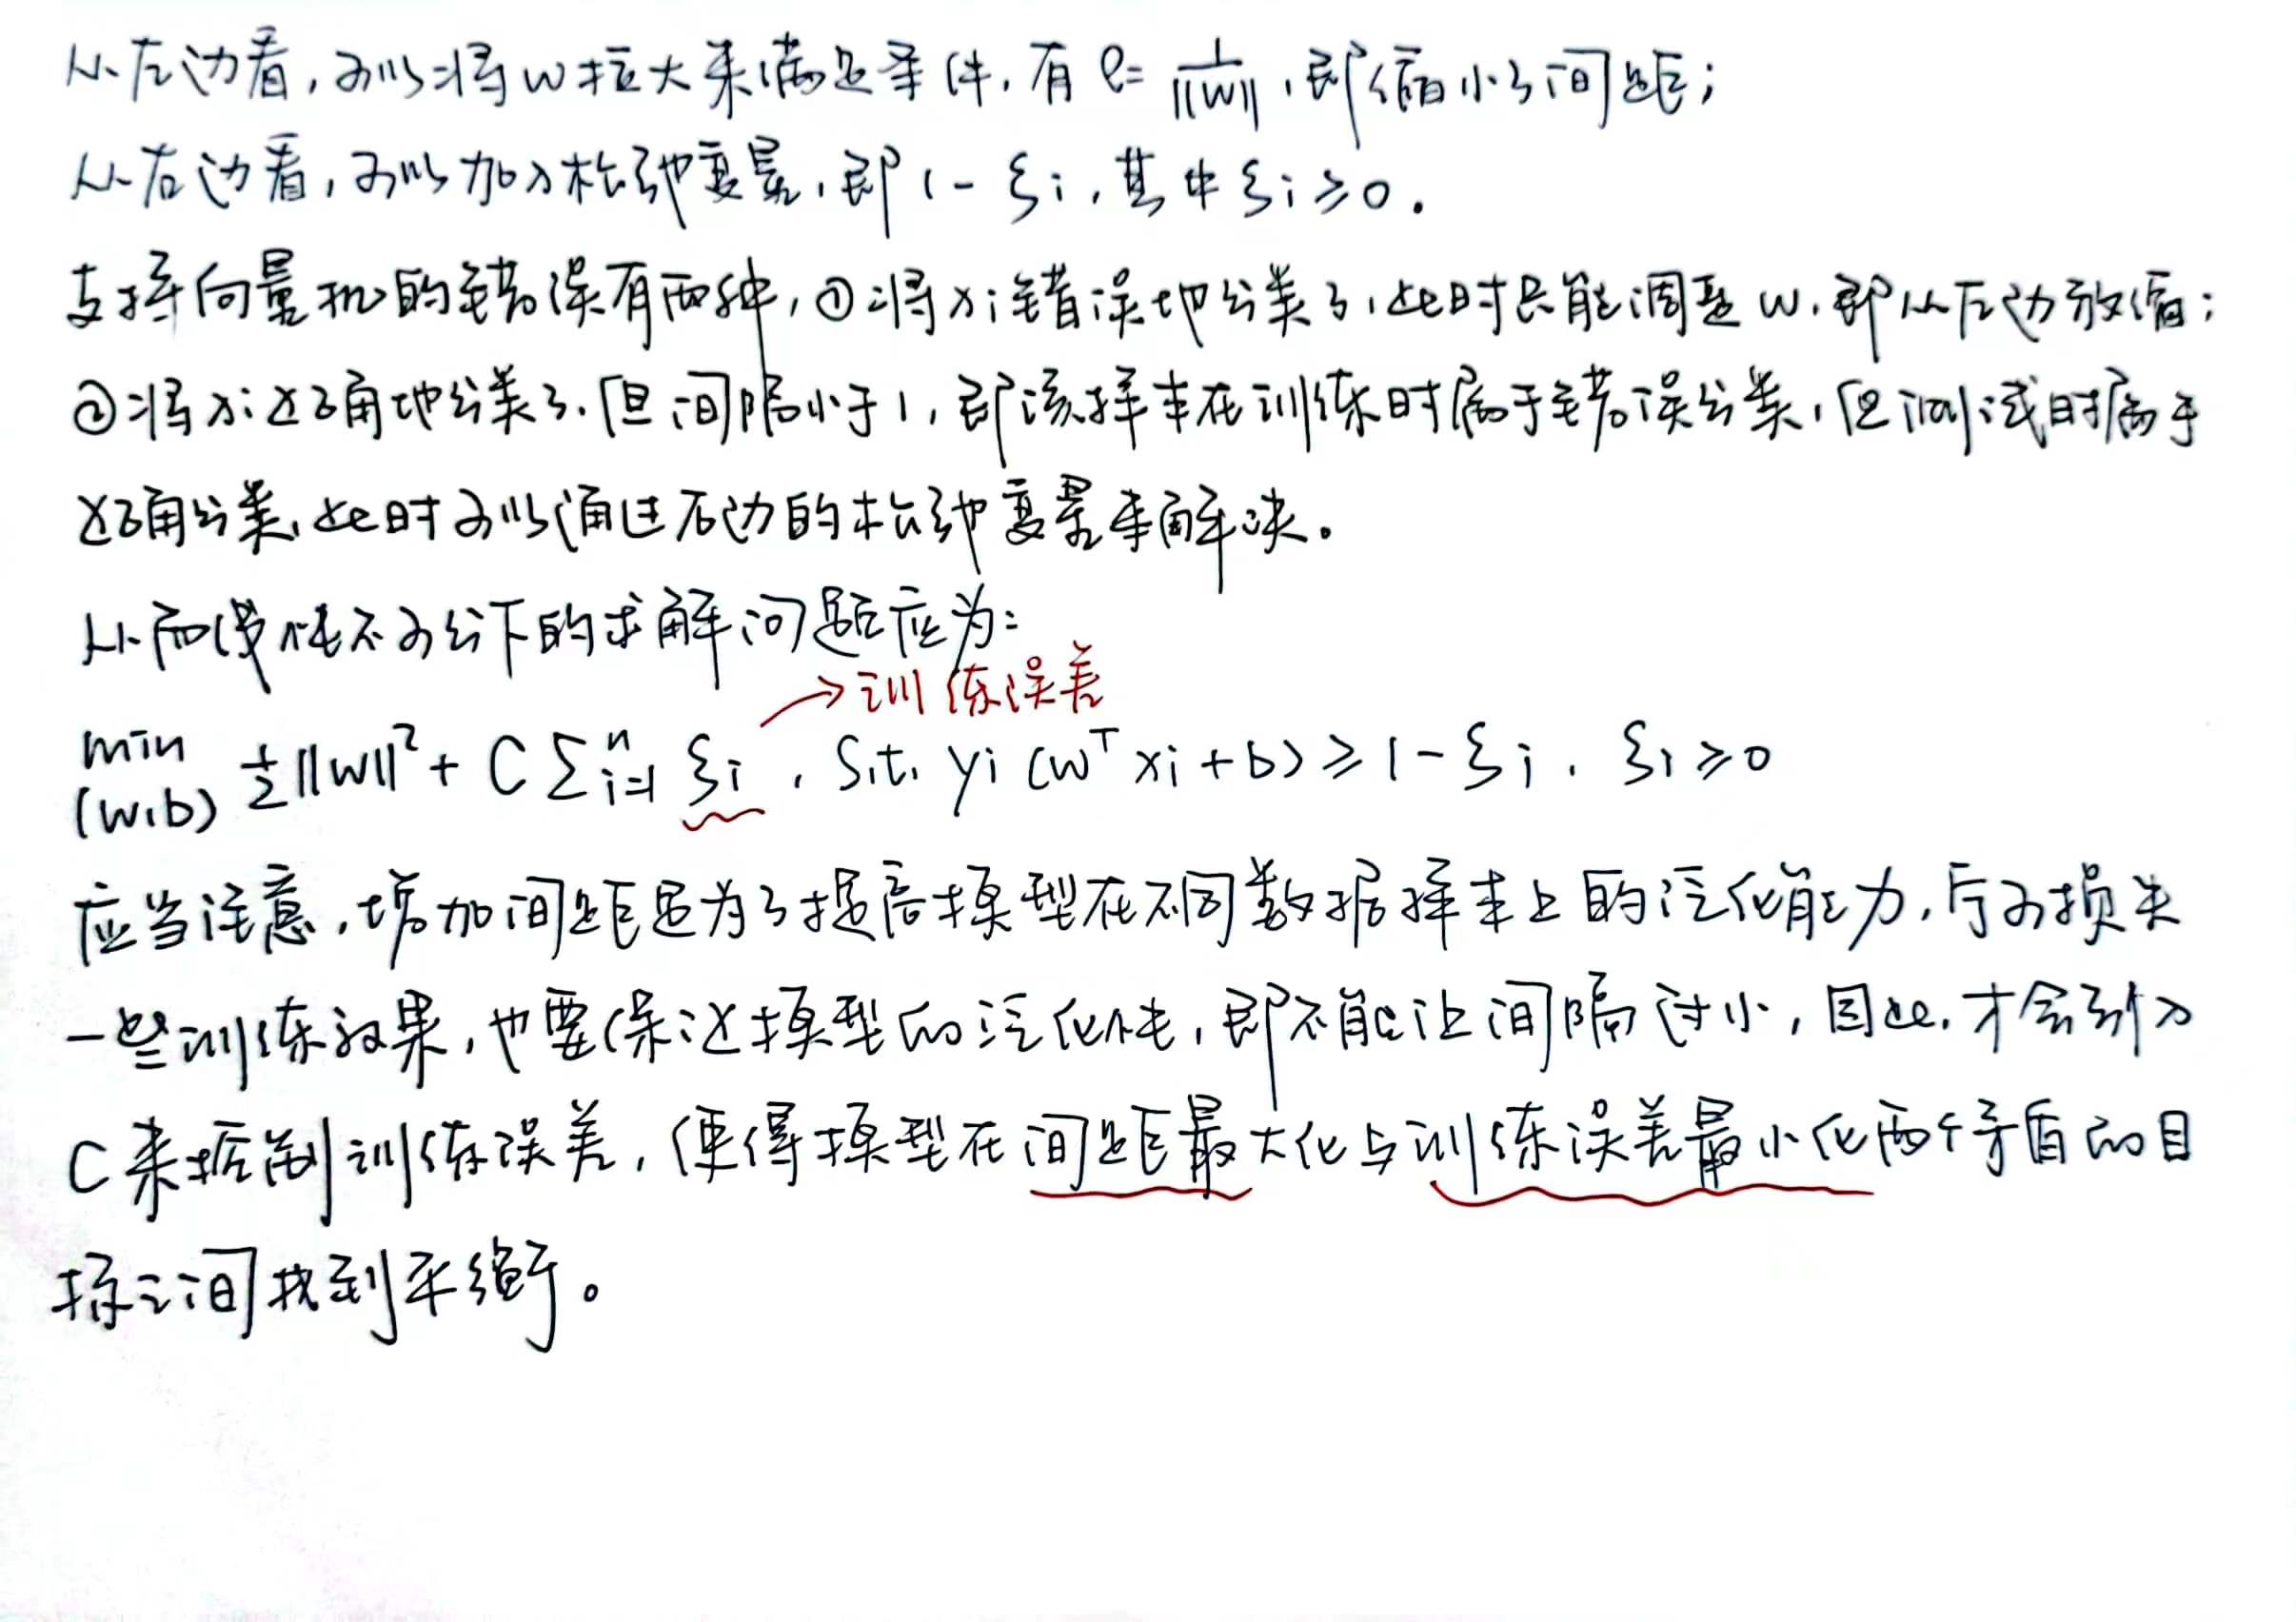 从左边看,可以将w拉大来满足条件,有ρ=1/||w||,即缩小了间距;
从右边看,可以加入松弛变量,即1-ξi,其中ξi≥0.
支持向量机的错误有两种,①将xi错误地分类了,此时只能调整w,即从左边放缩;
②将xi正确地分类了,但间隔小于1,即该样本在训练时属于错误分类,但测试时属于
正确分类,此时可以通过右边的松弛变量来解决。
从而线性不可分下的求解问题应为:
→训练误差
min (w,b) ½||w||²+C∑ⁿᵢ₌₁ ξi, s.t. yi(wᵀxi+b)≥1-ξi, ξi≥0
应当注意,增加间距是为了提高模型在不同数据样本上的泛化能力,宁可损失
一些训练效果,也要保证模型的泛化性,即不能让间隔过小,因此,才会引入
C来控制训练误差,使得模型在间距最大化与训练误差最小化两个矛盾的目
标之间找到平衡。